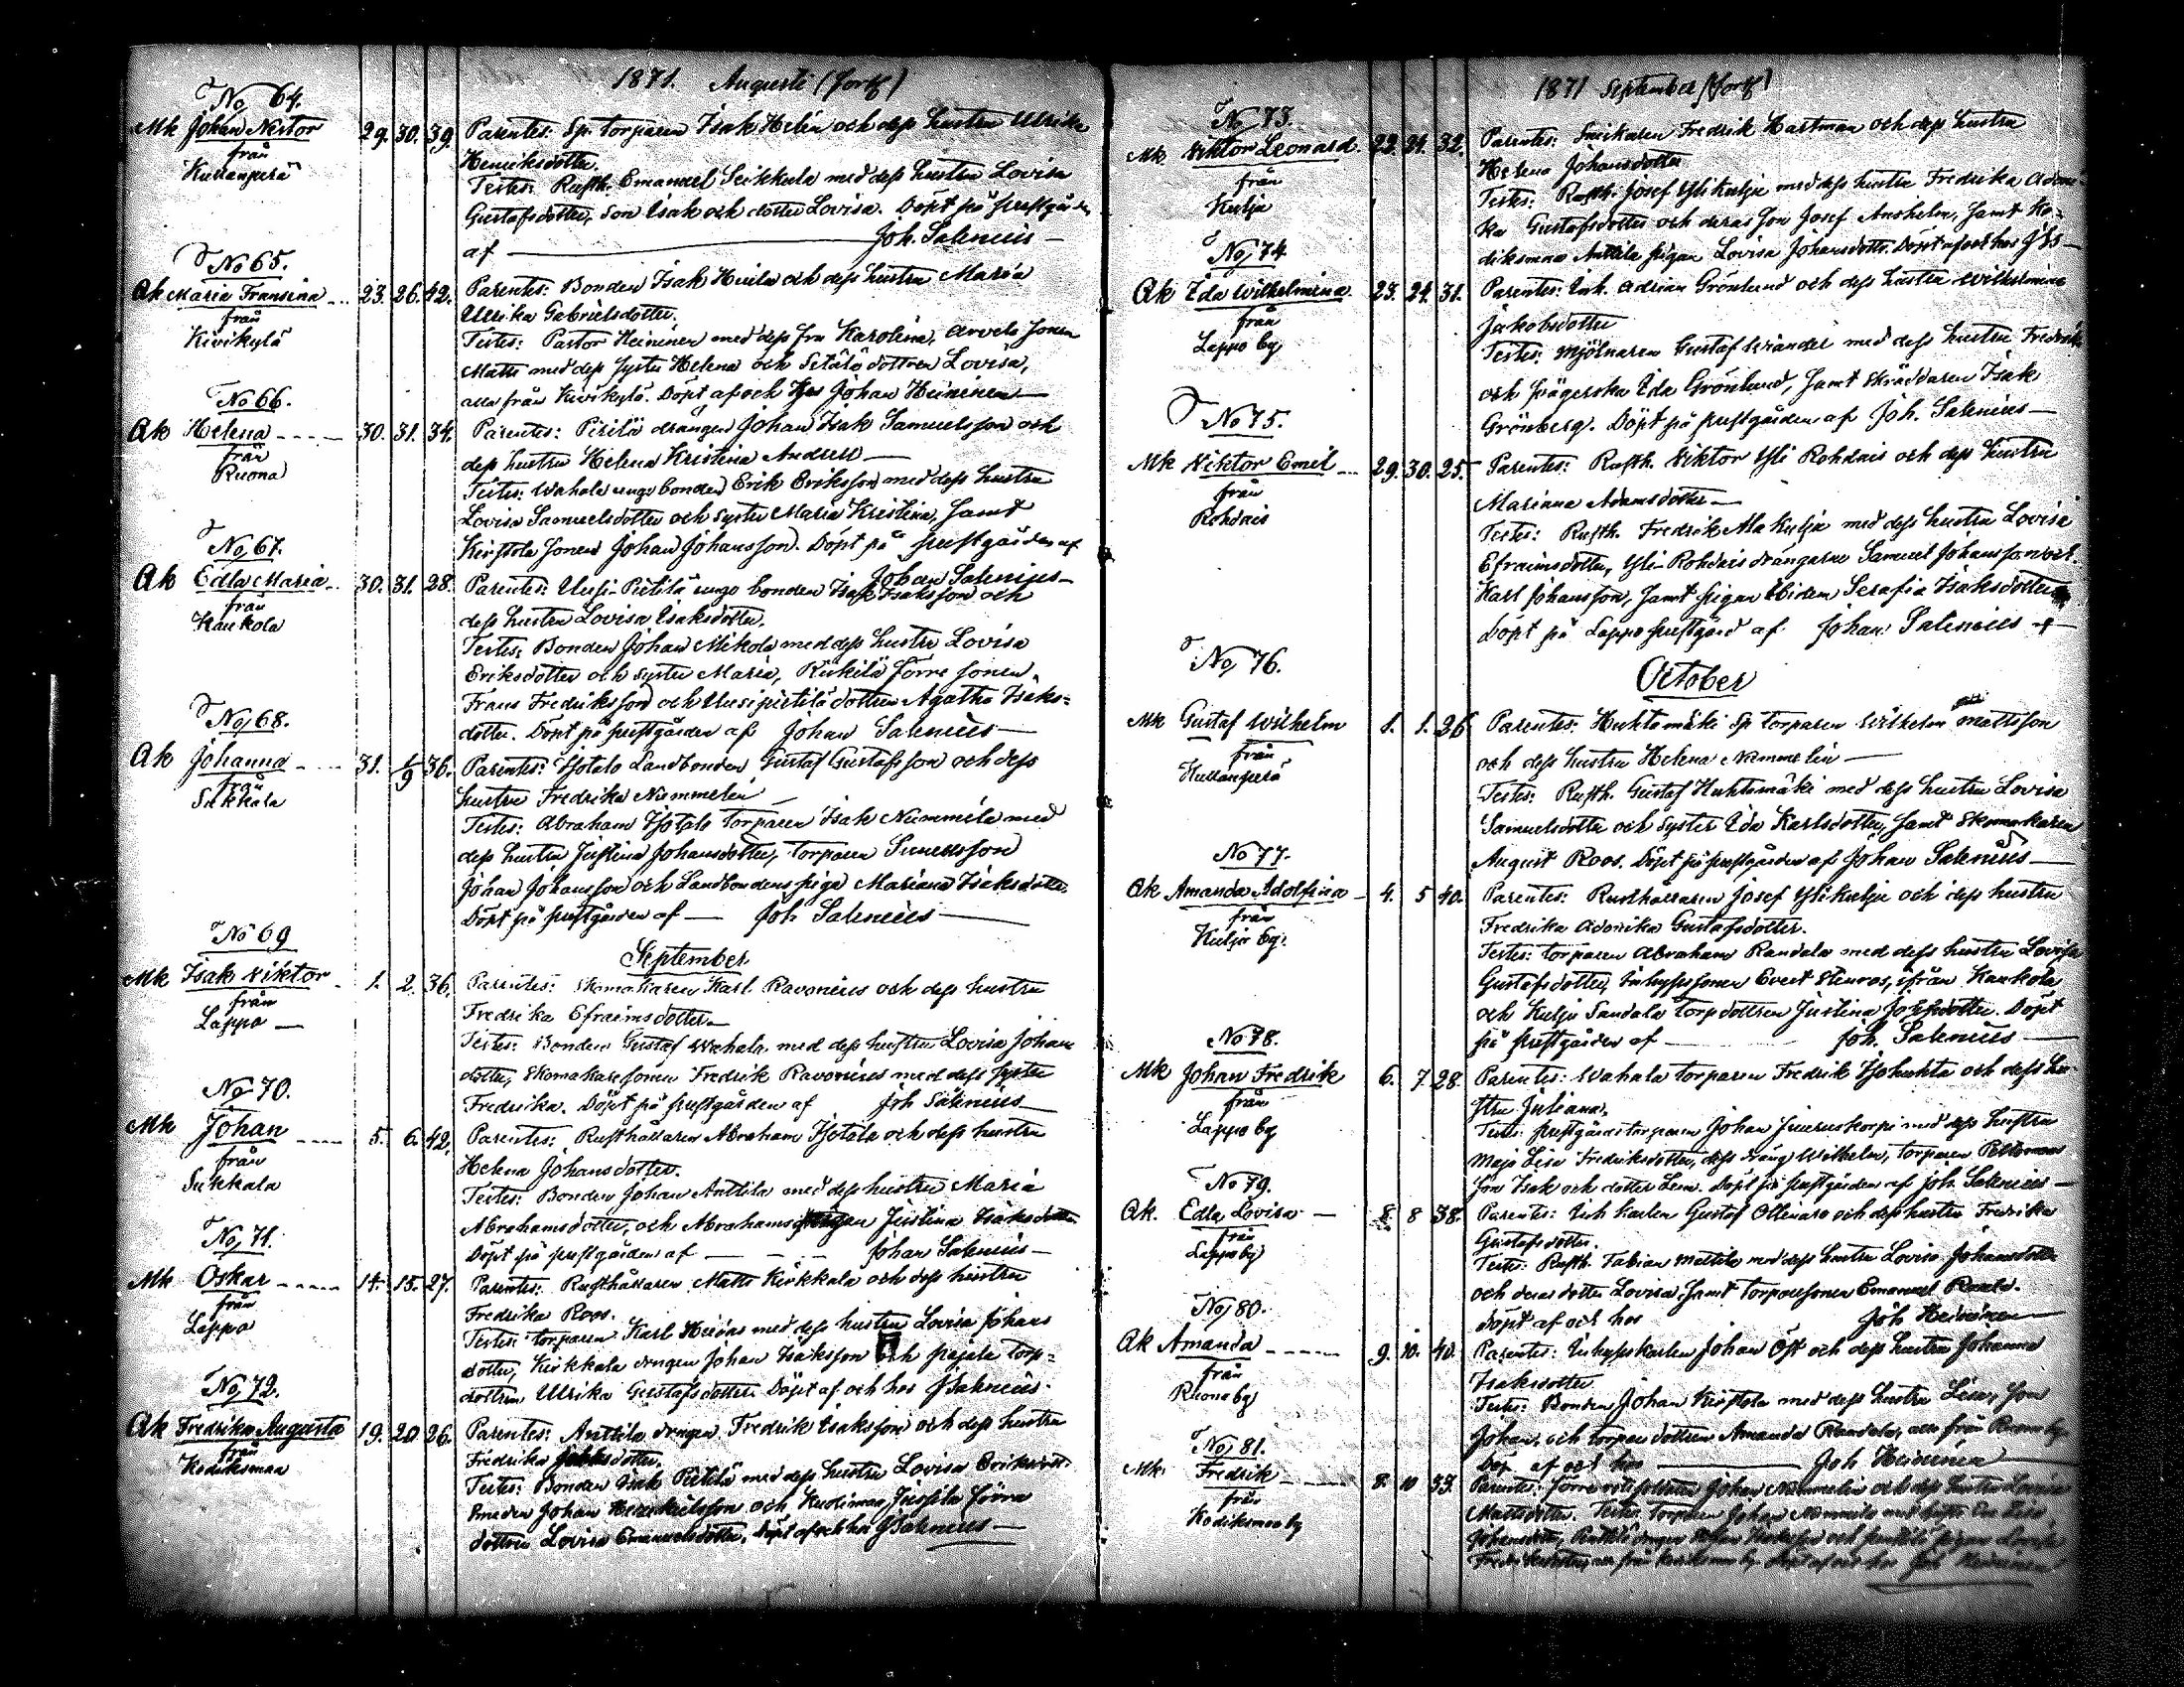 1871. Augusti (Forts)
No 64.
Mk Johan Nestor 29. 30. 39. Parentes: Sp. torparen Isak Helin och dess hustru Ulrika
från Henriksdotter.
Kullanperä Testes: Rusth. Emanuel Seikkula med dess hustru Lovisa
Gustafsdotter, son Isak och dotter Lovisa. Döpt på prestgården
af Joh. Salenius
No 65.
Qk Maria Fransina 23. 26. 42. Parentes: Bonden Isak Heikila och dess hustru Maria
från Ulrika Gabrielsdotter.
Kivikylä Testes: Pastor Heininen med dess fru Karolina, Arvela sonen
Matts med dess syster Helena och Setälä dottren Lovisa,
alla från Kivikylä. Döpt af och hos Johan Heininen
No 66.
Qk Helena 30. 31. 34. Parentes: Pirilä drängen Johan Isak Samuelsson och
från dess hustru Helena Kristina Andersd
Ruona Testes: Wahala unge bonden Erik Eriksson med dess hustru
Lovisa Samuelsdotter och syster Maria Kristina, samt
Kirstola sonen Johan Johansson. Döpt på prestgården af
Johan Salenius
No 67.
Qk Edla Maria 30. 31. 28. Parentes: Uusi-Pietilä unge bonden Isak Isaksson och
från dess hustru Lovisa Isaksdotter.
Kaukola Testes: Bonden Johan Mikola med dess hustru Lovisa
Eriksdotter och syster Maria, förre sonen
Frans Fredriksson och Uusipietilä dottren Agatha Isaks-
dotter. Döpt på prestgården af Johan Salenius
No 68.
Qk Johanna 31. 1/9 36. Parentes: Isotalo Landbonden Gustaf Gustafsson och dess
från hustru Fredrika Nummelin
Sukkala Testes: Abraham Isotalo torparen Isak Nummila med
dess hustru Justina Johansdotter, torparen
Johan Johansson och Landbondens piga Mariana Isaksdotter.
Döpt på prestgården af Joh. Salenius
September
No 69
Mk Isak Viktor 1. 2. 36. Parentes: Skomakaren Karl Ravonius och dess hustru
från Fredrika Efraimsdotter
Lappo Testes: Bonden Gustaf Wahala med dess hustru Lovisa Johans
dotter, Skomakaresonen Fredrik Ravonius med dess syster
Fredrika. Döpt på prestgården af Joh Salenius
No 70.
Mk Johan 5. 6. 42. Parentes: Rusthållaren Abraham Isotalo och dess hustru
från Helena Johansdotter.
Sukkala Testes: Bonden Johan Anttila med dess hustru Maria
Abrahamsdotter, och Abrahams Justina Isaksdotter
Döpt på prestgården af Johan Salenius
No 71.
Mk Oskar 14. 15. 27. Parentes: Rusthållaren Matts Kirkkala och dess hustru
från Fredrika Roos.
Lappo Testes: torparen Karl Heinas med dess hustru Lovisa Johans
dotter, Kirkkala drengen Johan Isaksson och pajala torp-
dottren Ulrika Gustafsdotter. Döpt af och hos JSalenius
No 72.
Qk Fredrika Augusta 19. 20 26. Parentes: Anttila drengen Fredrik Isaksson och dess hustru
från Fredrika
Kodiksmaa Testes: Bonden Isak Pietilä med dess hustru Lovisa Eriksdott.
Smeden Johan och förra
dottren Lovisa Emanuelsdotter. Döpt af och hos JSalenius
1871 September (Forts)
No 73.
Mk Viktor Leonard. 22. 24. 32. Parentes: Snikaren Fredrik Hartman och dess hustru
från Helena Johansdotter
Kulju Testes: Rusth. Josef Ylikulju med dess hustru Fredrika Adoni-
ka Gustafsdotter och deras son Josef Anshelm, samt Ko-
diksmaa Anttila pigan Lovisa Johansdotter. Döpt af och hos JSS
No 74.
Qk Ida Wilhelmina. 23. 24. 31. Parentes: Inh. Adrian Grönlund och dess hustru Wilhelmina
från Jakobsdotter
Lappo by Testes: Mjölnaren Gustaf Wiander med dess hustru Fredrika
och Ida Grönlund, samt skräddaren Isak
Grönberg. Döpt på prestgården af Joh. Salenius
No 75.
Mk Viktor Emil 29. 30. 25. Parentes: Rusth. Viktor Yli Rohdais och dess hustru
från Mariana Adamsdotter
Rohdais Testes: Rusth. Fredrik Ala Kulju med dess hustru Lovisa
Efraimsdotter, Yli-Rohdais drängarne Samuel Johansson och
Karl Johansson, samt pigan ibidem Serafia Isaksdotter
Döpt på Lappo prestgård af Johan Salenius
October
No 76.
Mk Gustaf Wilhelm 1. 1. 26 Parentes: Huhtamäki Sp torparen Wilhelm Mattsson
från och dess hustru Helena Nummelin
Kullanperä Testes: Rusth. Gustaf Huhtamäki med dess hustru Lovisa
Samuelsdotter och syster Ida Karlsdotter, samt skomakaren
August Roos. Döpt på prestgården af Johan Salenius
No 77.
Qk Amanda Adolfina 4. 5 40. Parentes: Rusthållaren Josef Ylikulju och dess hustru
från Fredrika Adonika Gustafsdotter.
Kulju by. Testes: torparen Abraham Randala med dess hustru Lovisa
Gustafsdotter, Inhyssonen Evert Stenros, ifrån Kaukola
och Kulju Sandala torpdottren Justina Johsdotter. Döpt
på prestgården af Joh. Salenius
No 78.
Mk Johan Fredrik 6. 7. 28 Parentes: Wahala torparen Fredrik Isohuhta och dess hu-
från stru Juliana.
Lappo by Testes: prestgårdstorparen Johan Juurus korpi med dess hustru
Maja Lisa Fredriksdotter, dess dräng Wilhelm, torparen Peltomaa
son Isak och dotter Lena. Döpt på prestgården af Joh. Salenius
No 79.
Qk. Edla Lovisa 8. 8 38. Parentes: Inh karlen Gustaf Ollinaro och dess hustru Fredrika
från Gustafsdotter.
Lappo by Testes: Rusth. Fabian Mattila med dess hustru Lovisa Johansdotter
och deras dotter Lovisa, samt torparesonen Emanuel
döpt af och hos Joh Heininen
No 80.
Qk Amanda 9. 10. 40. Parentes: Inhysskarlen Johan Öst och dess hustru Johanna
från Isaksdotter
Ruona by Testes: Bonden Johan Kirstola med dess hustru Lisa, son
Johan, och torpare dottren Amanda Randala, alla från Ruona by.
Döp af och hos Joh Heininen
No 81.
Mk. Fredrik 8. 10 33. Parentes: Förre rotesoldaten Johan Nummelin och dess hustru Lovisa
från Mattsdotter. Testes: torparen Johan Nummila med hustru Eva Lisa
Kodiksmaa by Johansdotter, drengen och pigan Lovisa
från Kodiksmaa by. döpt af och hos Joh Heininen